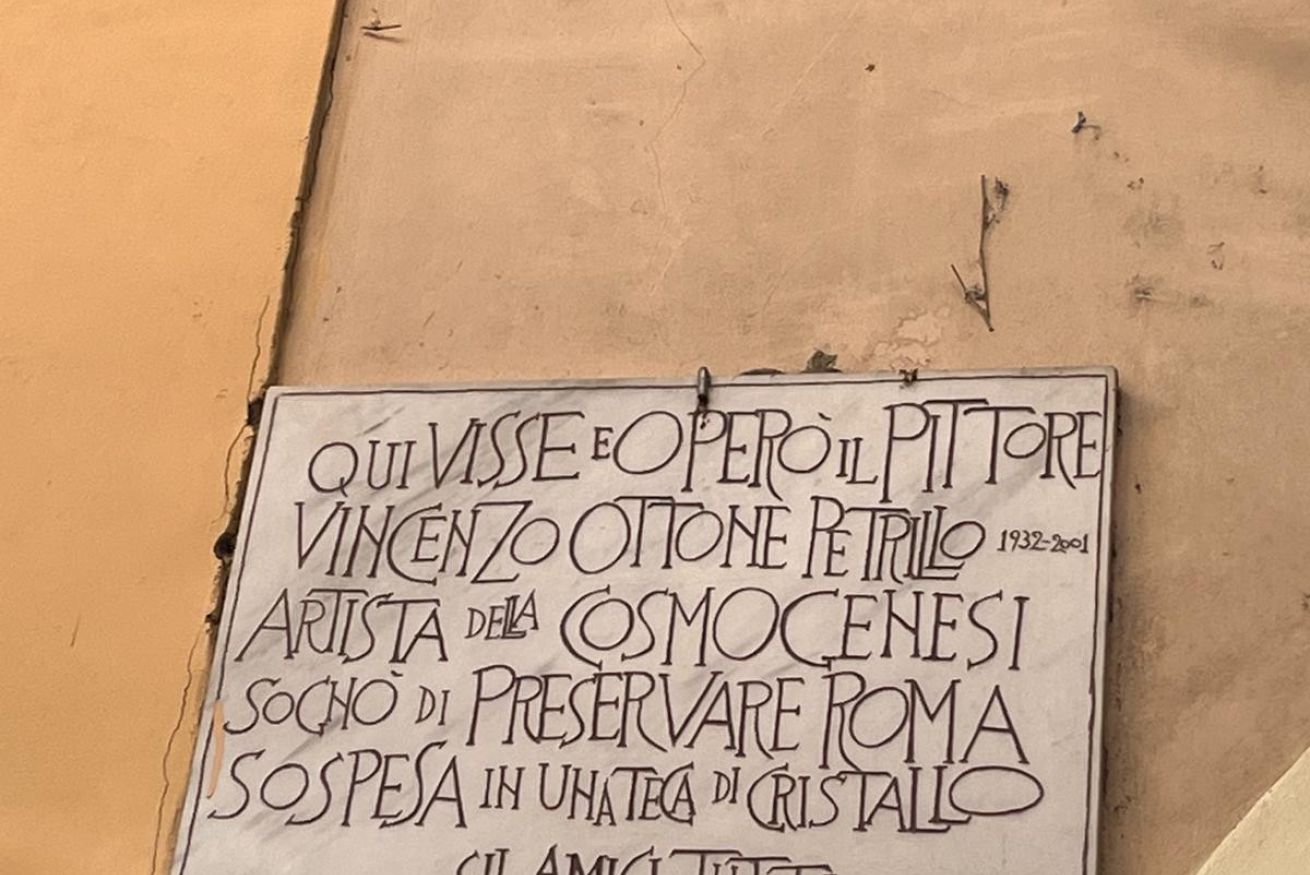 QUI VISSE E OPERÒ IL PITTORE
VINCENZO OTTONE PETRILLO 1932-2001
ARTISTA DELLA COSMOGENESI
SOGNÒ DI PRESERVARE ROMA
SOSPESA IN UNA TECA DI CRISTALLO
GLI AMICI TUTTI